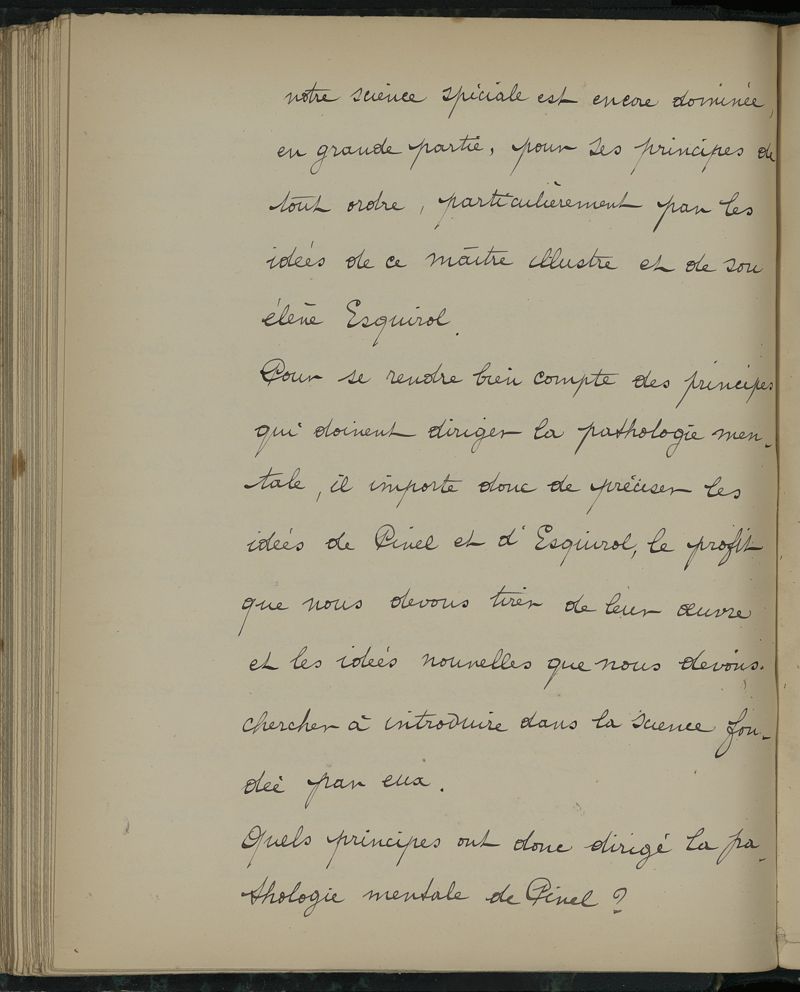 notre science spéciale est encore dominée,
en grande partie, pour ses principes de
tout ordre, particulièrement par les
idées de ce maître illustre et de son
élève Esquirol.
Pour se rendre bien compte des principes
qui doivent diriger la pathologie men-
tale, il importe donc de préciser les
idées de Pinel et d'Esquirol, le profit
que nous devons tirer de leur œuvre
et les idées nouvelles que nous devons
chercher à introduire dans la science fon-
dée par eux.
Quels principes ont donc dirigé la pa-
thologie mentale de Pinel ?